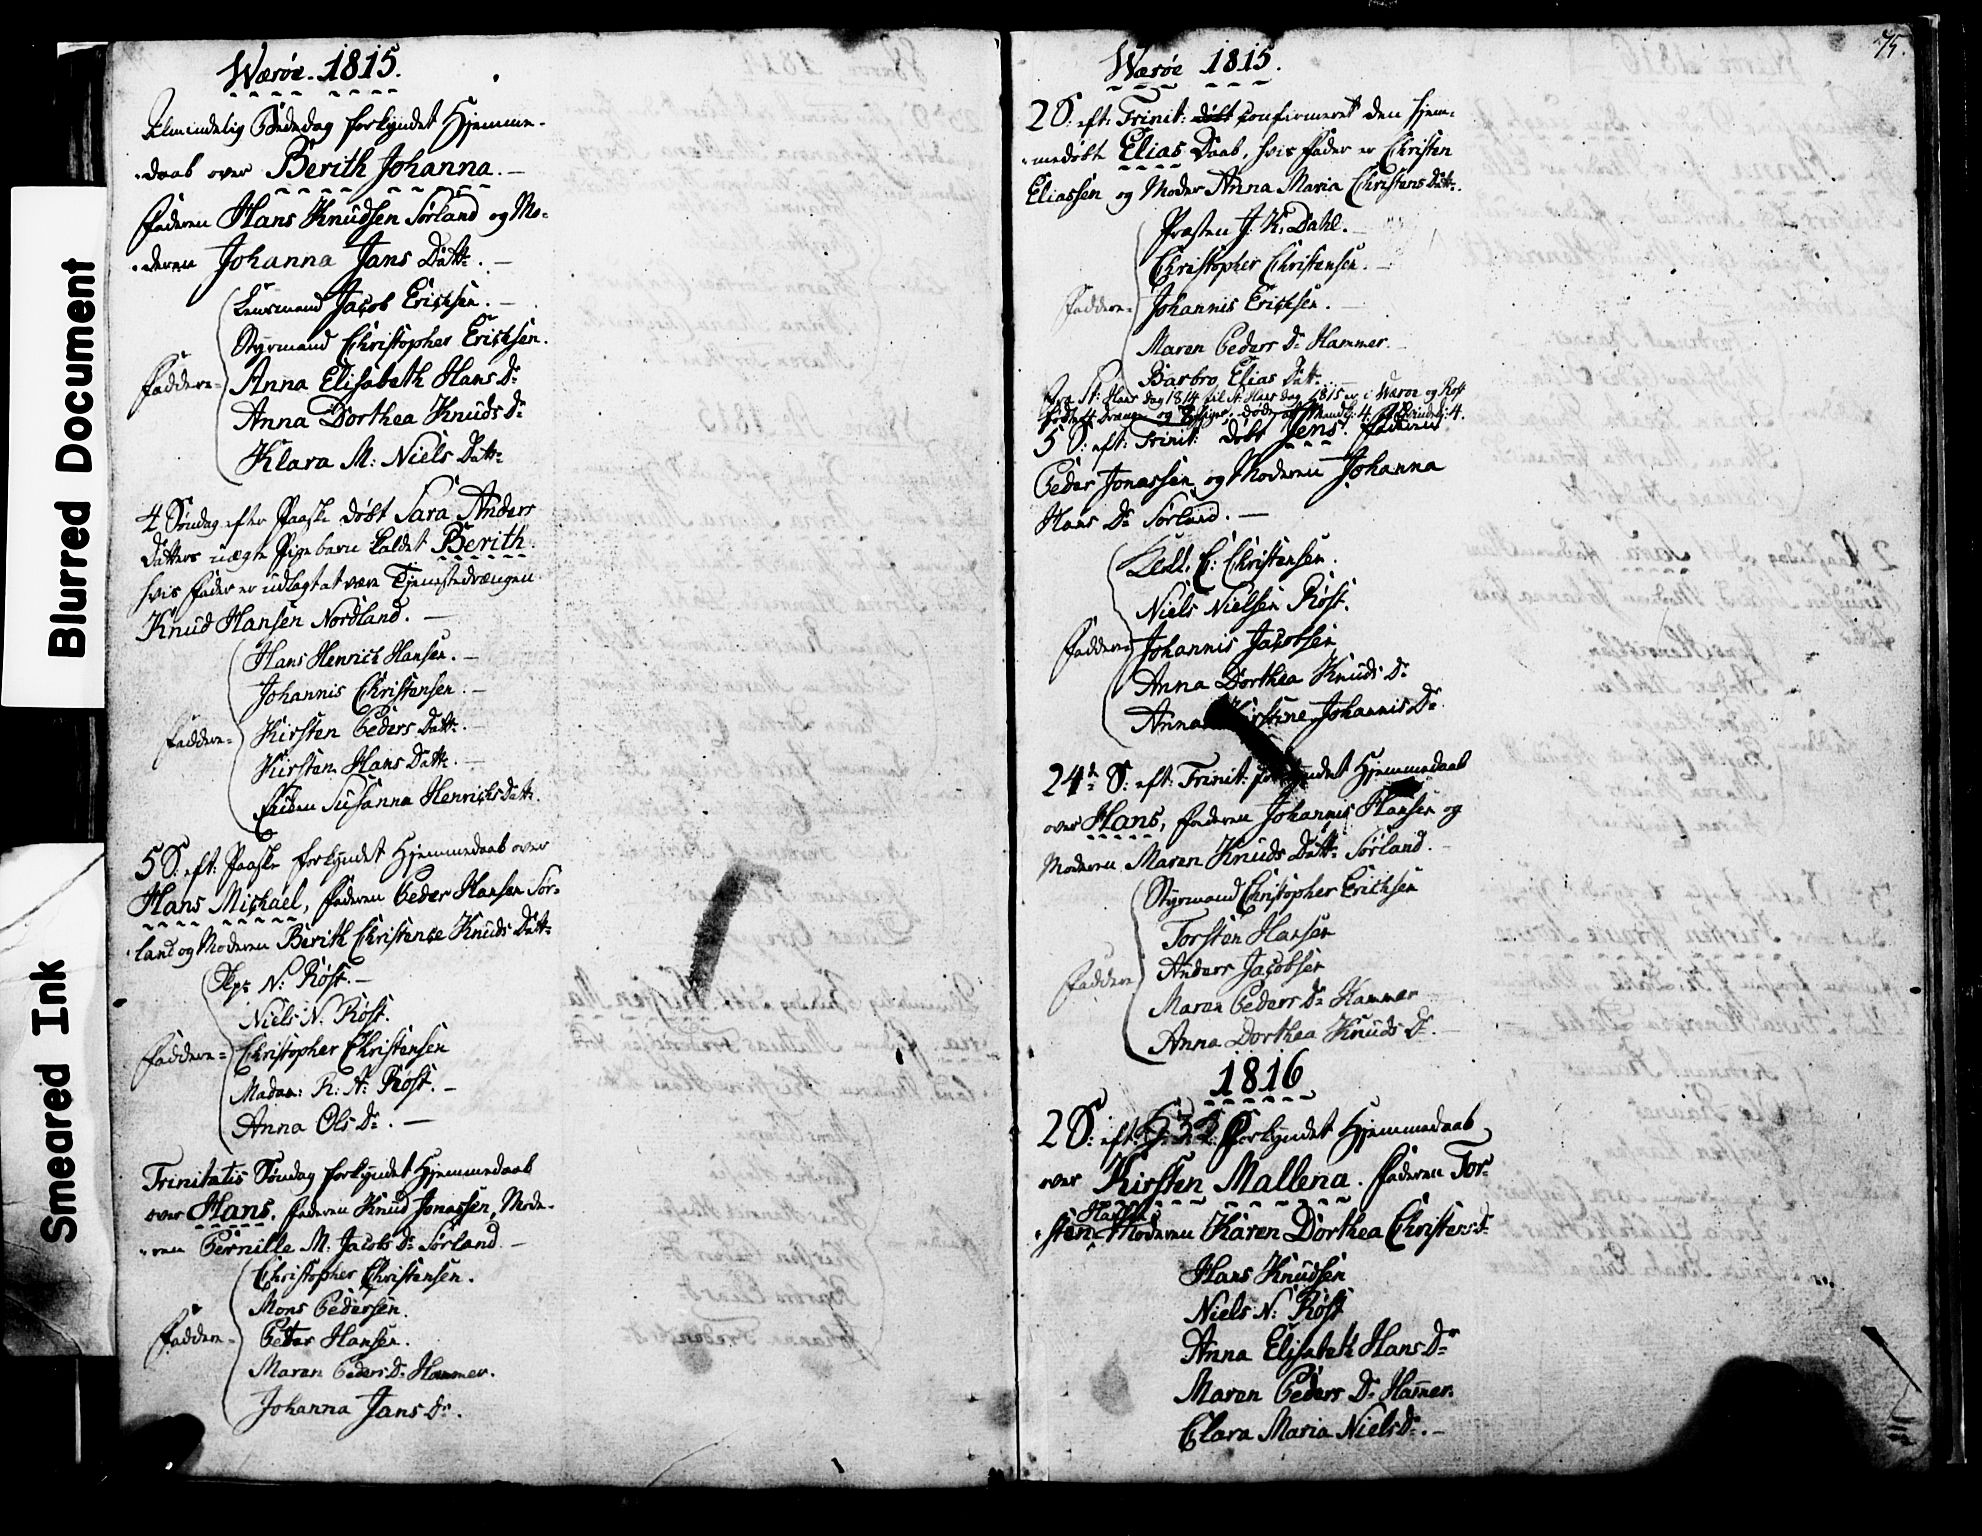 Blurred Document
Smeared Ink
Værøe. 1815.
Almindelig Bededag forkyndet Hjemme-
daab over Berith Johanna.
Faderen Hans Knudsen Sørland og Mo-
deren Johanna Jans Datt:
Lensmand Jacob Erichsen.
Styrmand Christopher Erichsen.
Faddere Anna Elisabeth Hans D:
Anna Dorthea Knuds D:
Klara M: Niels Datt:
4 Søndag efter Paaske døbt Sara Anders
Datters uægte Pigebarn kaldet Berith.
hvis Fader er udlagt at være Tjenestedrængen
Knud Hansen Nordland.
Hans Henrich Hansen.
Johannis Christensen.
Faddere Kirsten Peders Datt:
Kirsten Hans Datt:
Susanna Henrichs Datt:
5 S: eft: Paaske forkyndet Hjemmedaab over
Hans Michael, Faderen Peder Hansen Sør-
land og Moderen Berith Christense Knuds Datt:
N: Røst.
Niels N. Røst.
Faddere Christopher Christensen
Madm: R: A: Røst.
Anna Ols D:
Trinitatis Søndag forkyndet Hjemmedaab
over Hans, Faderen Knud Jonassen, Mode-
ren Pernille M. Jacobs D: Sørland.
Christopher Christensen.
Mons Pedersen.
Faddere Petter Hansen.
Maren Peders D: Hammer.
Johanna Jans D:
75.
Værøe 1815.
2 S: eft: Trinit: døbt confirmeret den Hjem-
medøbte Elias Daab, hvis Fader er Christen
Eliassen og Moder Anna Maria Christens Datt:
Præsten J. K. Dahl.
Christopher Christensen.
Faddere Johannis Erichsen.
Maren Peders D: Hammer.
Barbro Elias Datt:
Fra St: Hans dag 1814 til St: Hans dag 1815 er i Værøe og Røst
4 Drenge og døde af Mandk: 4. Qvindek: 4.
5 S: eft: Trinit: døbt Jens. Faderen
Peder Jonassen og Moderen Johanna
Hans D: Sørland.
C: Christensen.
Niels Nielsen Røst.
Faddere Johannis Jacobsen
Anna Dorthea Knuds D:
Anna Kirstine Johannis D:
24d S: eft: Trinit: forkyndet Hjemmedaab
over Hans, Faderen Johannis Hansen og
Moderen Maren Knuds Datt: Sørland.
Styrmand Christopher Erichsen
Torsten Hansen
Faddere Anders Jacobsen
Maren Peders D: Hammer
Anna Dorthea Knuds D:
1816
2 S: eft: forkyndet Hjemmedaab
over Kirsten Mallena. Faderen Tor-
sten Hansen Moderen Karen Dorthea Christens D:
Hans Knudsen
Niels N: Røst
Anna Elisabeth Hans D:
Maren Peders D: Hamer.
Clara Maria Niels D: